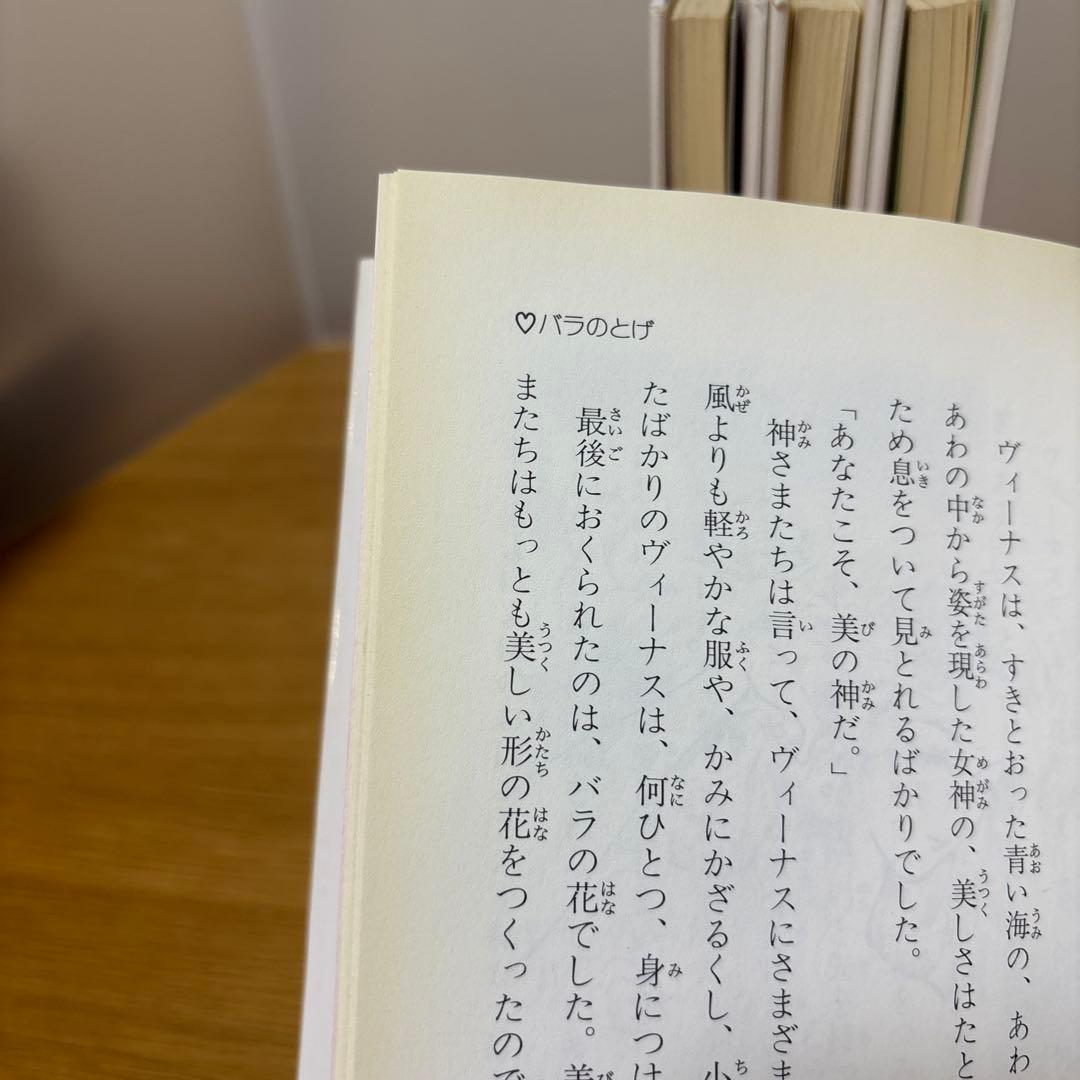 ♡バラのとげ
ヴィーナスは、すきとおった青い海の、あわ
あわの中から姿を現した女神の、美しさはたと
ため息をついて見とれるばかりでした。
「あなたこそ、美の神だ。」
神さまたちは言って、ヴィーナスにさまざま
風よりも軽やかな服や、かみにかざるくし、小
たばかりのヴィーナスは、何ひとつ、身につけ
最後におくられたのは、バラの花でした。美
またちはもっとも美しい形の花をつくったので